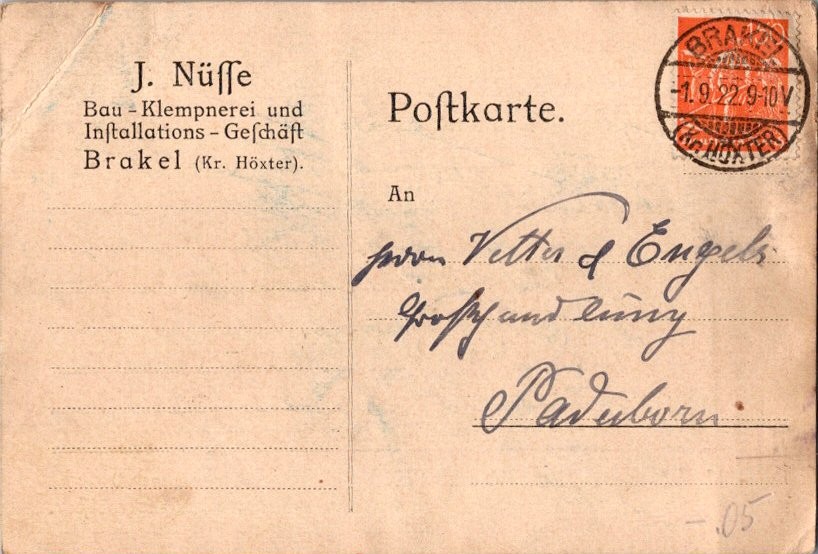 J. Nüſſe
Bau-Klempnerei und
Inſtallations-Geſchäft
Brakel (Kr. Höxter).
Poſtkarte.
BRAKEL
-1.9.22.9-10V
(Kr. HÖXTER)
An
Herrn Vetter & Engels
Großhandlung
Paderborn
-.05